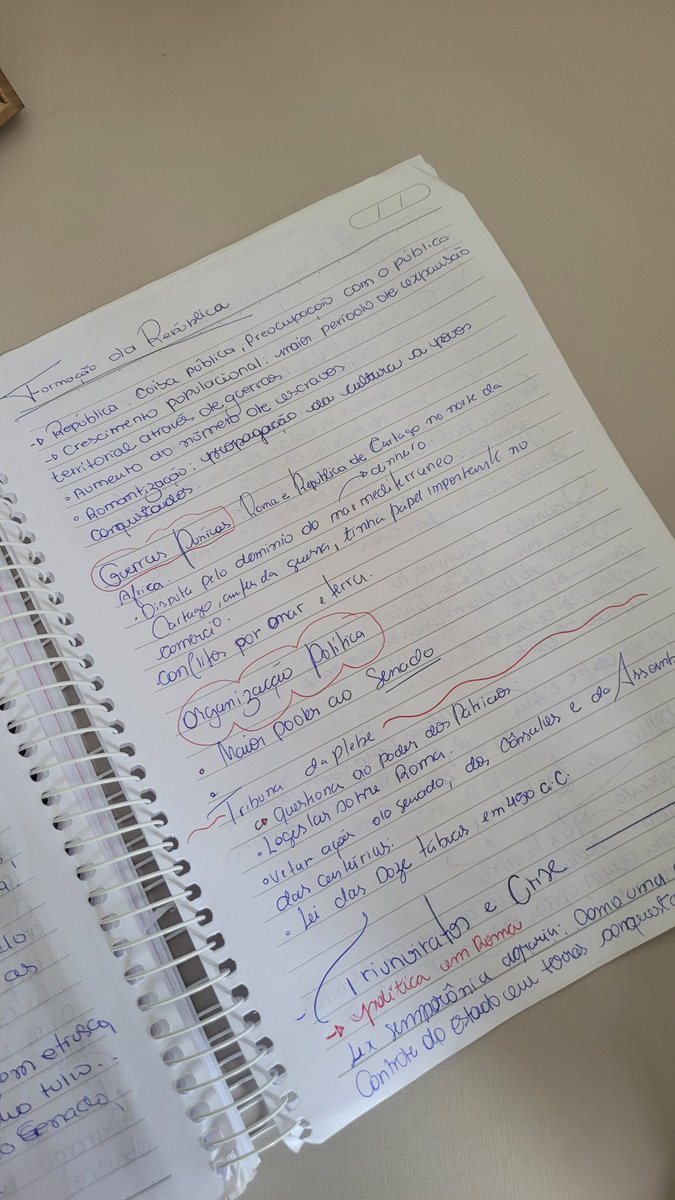 Formação da República
→ República: Coisa pública, Preocupação com o público
→ Crescimento populacional: maior período de expansão
territorial através de guerras.
• Aumento do número de escravos
• Romantização: propagação da cultura a povos
conquistados.
Guerras Púnicas: Roma e República de Cartago no norte da
África. → dinheiro.
• Disputa pelo domínio do mar mediterraneo
Cartago, antes da guerra, tinha papel importante no
comercio.
conflitos por mar e terra.
Organização Política
• Maior poder ao Senado
Tribuna da Plebe
↳ questiona ao poder dos Patricios
• Legislar sobre Roma.
• Vetar ações do senado, dos cônsules e da Assemb
das centúrias.
• Lei das Doze tábuas em 450 a.C.
Triunviratos e Crise
→ política em Roma
Lex Semprônia agraria: como uma
Controle do estado em terras conquista
10
cas
om etrusca
tulio.
o Senado,